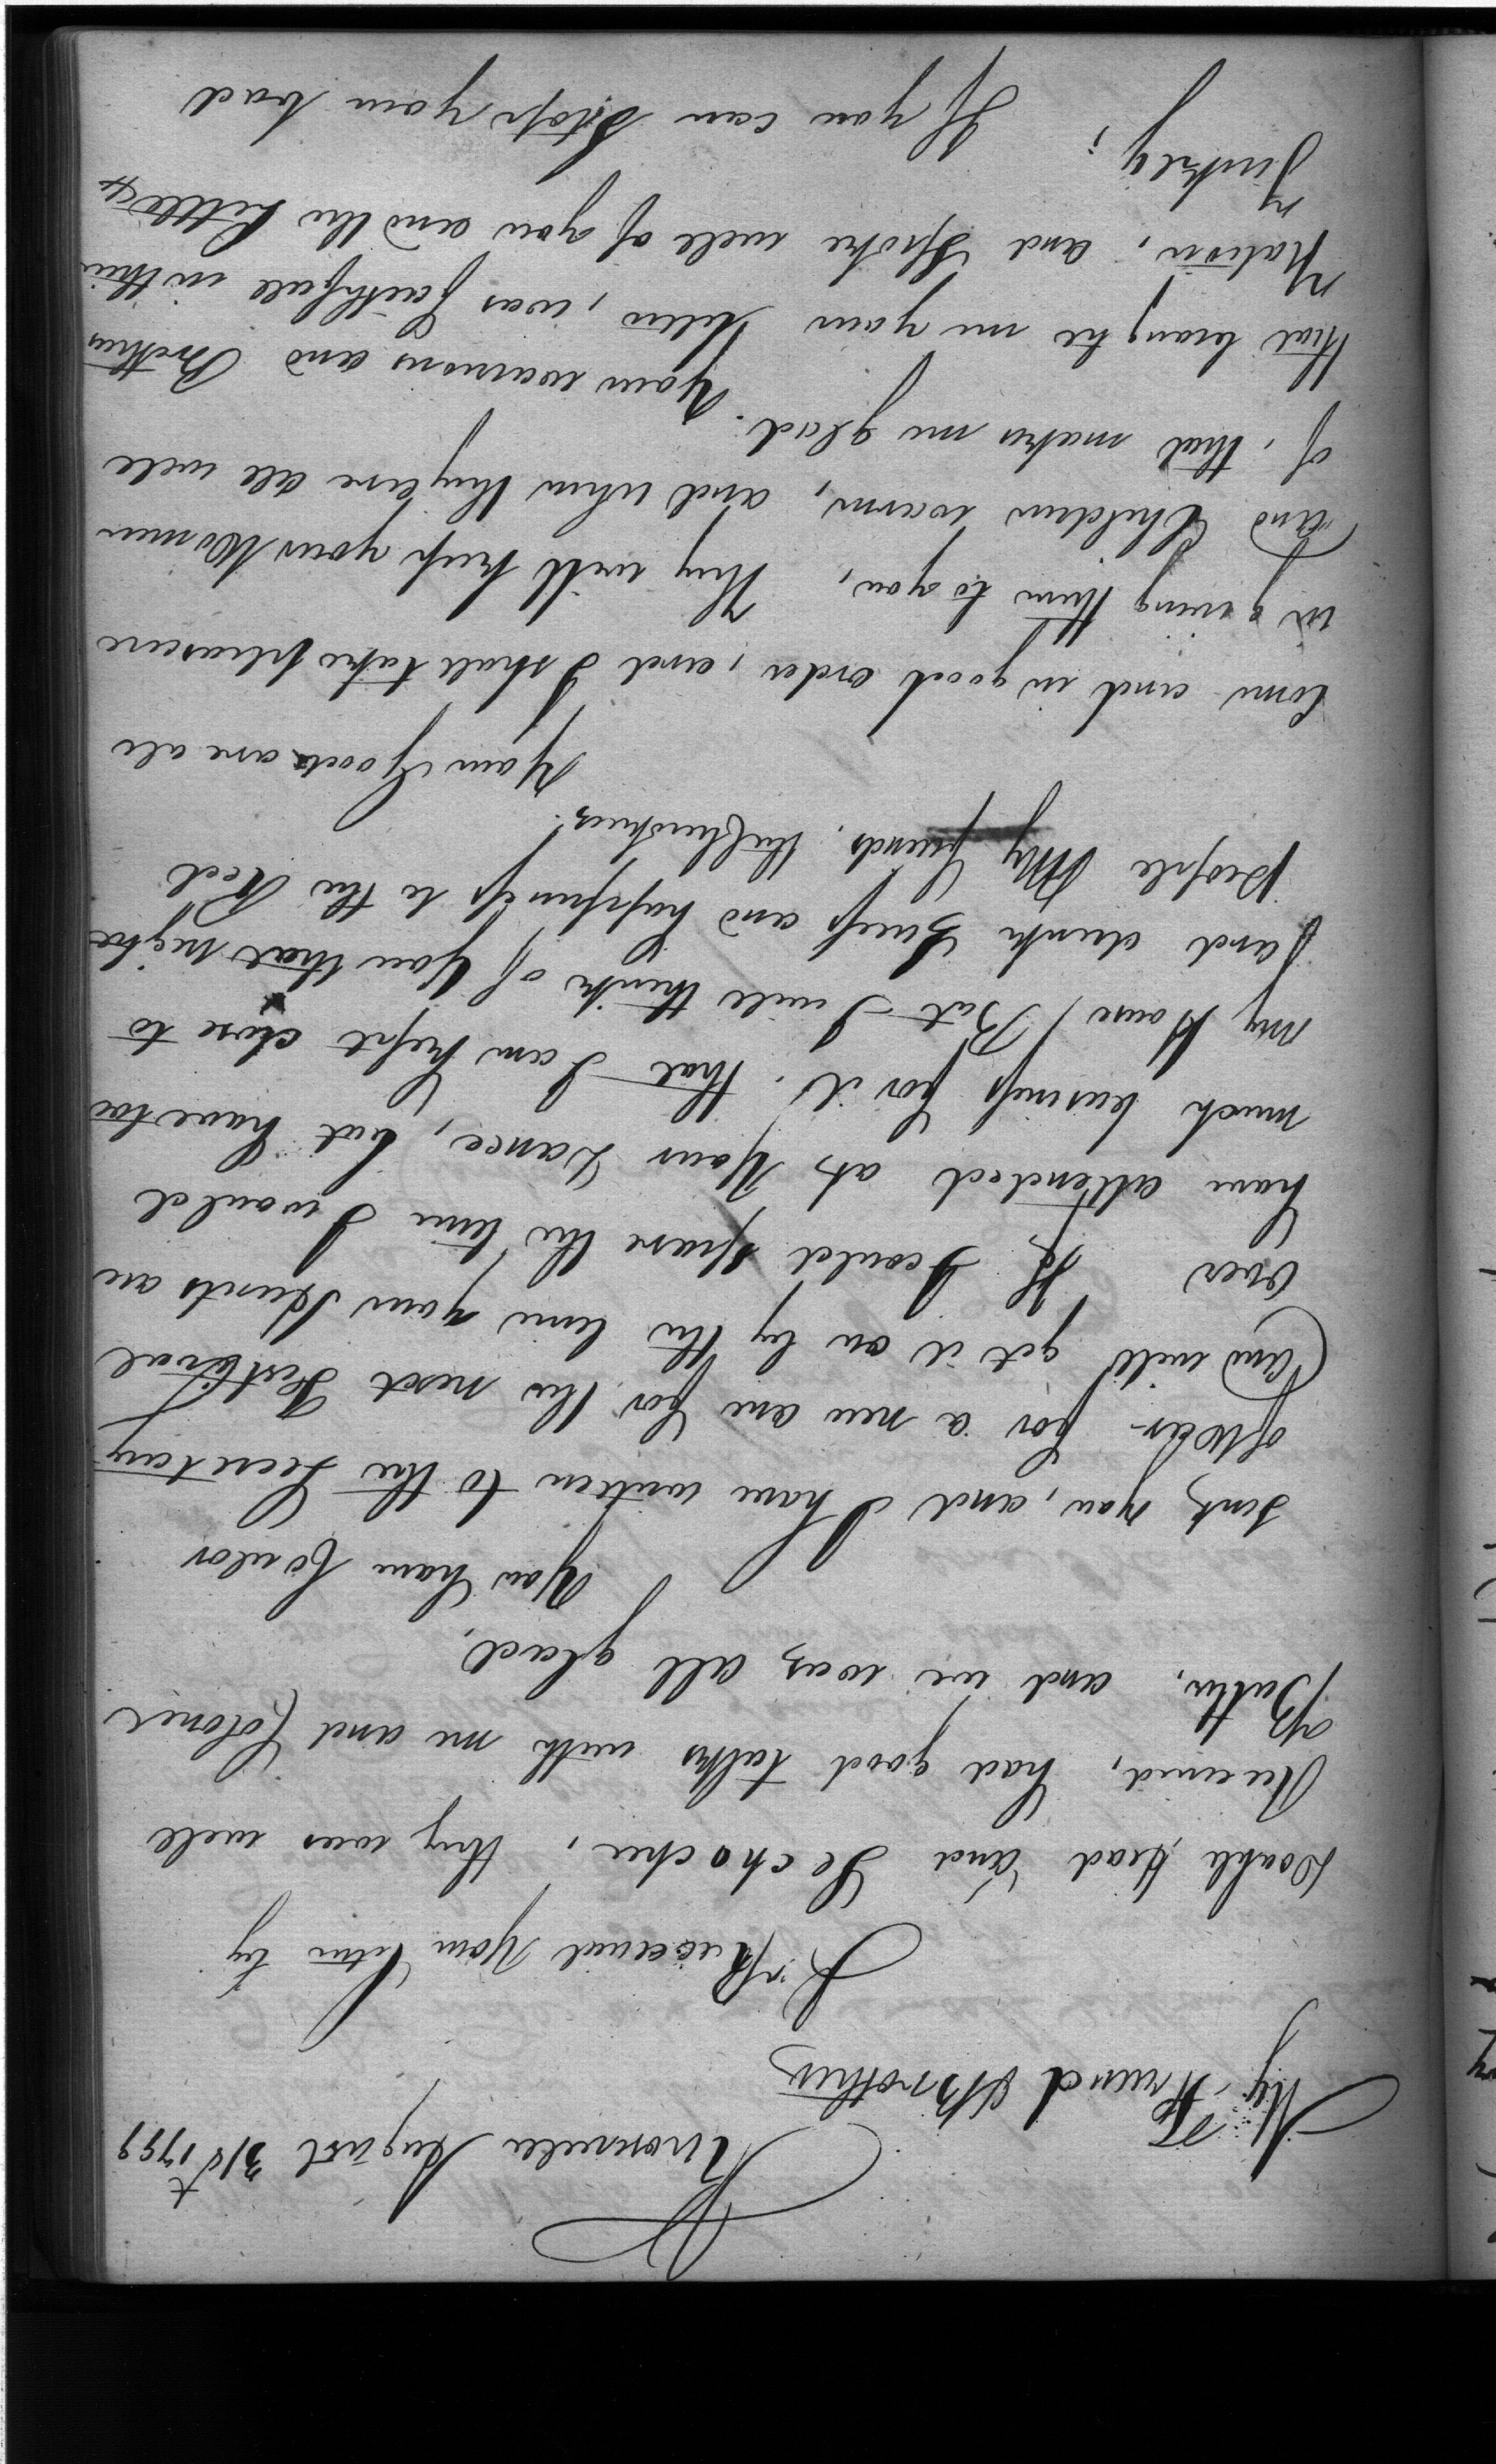 Knoxville August 31st 1799
My Friend & Brother
I Received Your letter by
Double Head and Sechochee, they was well
Received, had good talks with me and Colonel
Butler, and we was all glad.
You have Coulor
sent you, and I have written to the Secretary
of War for a new one for the next Festival
And will get it on by the time your Hunts are
Over If I could spare the time I would
have attended at Your Dance, but have too
much business for it. that I am kept close to
my House, But I will think of You that night
and drink Success and happiness to the Red
People My friends.
Your Goods are all
Come and in good order, and I shall take pleasure
in giving them to you, They will keep your Women
and Children warm, and when they are all well
of, that makes me glad.
Your warriors and Brothers
that brought me your letter, was faithfull in their
Nation, and Spoke well of you and the Little
Turkey;
If you can Stop your bad